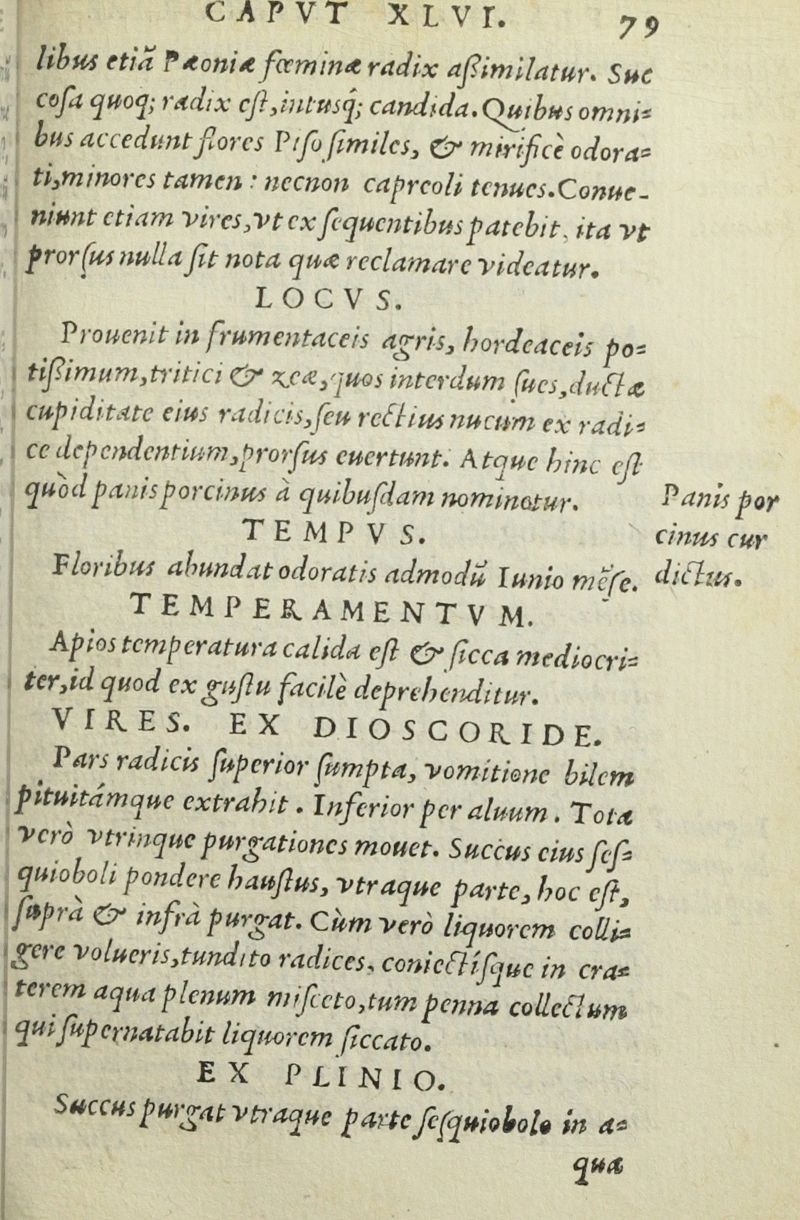 CAPVT XLVI. 79
libus etiā Pæoniæ fœminæ radix aßimilatur. Suc
cosa quoq; radix est, intusq́; candida. Quibus omni=
bus accedunt flores Piso similes, & mirificè odora=
ti, minores tamen: necnon capreoli tenues. Conue-
niunt etiam vires, vt ex sequentibus patebit, ita vt
prorsus nulla sit nota quæ reclamare videatur.
LOCVS.
Prouenit in frumentaceis agris, hordeaceis po=
tißimum, tritici & zeæ, quos interdum sues, ductæ
cupiditate eius radicis, seu rectius nucum ex radi=
ce dependentium, prorsus euertunt. Atque hinc est
quòd panis porcinus à quibusdam nominatur.
Panis por
cinus cur
dictus.
TEMPVS.
Floribus abundat odoratis admodū Iunio mēse.
TEMPERAMENTVM.
Apios temperatura calida est & sicca mediocri=
ter, id quod ex gustu facilè deprehenditur.
VIRES. EX DIOSCORIDE.
Pars radicis superior sumpta, vomitione bilem
pituitámque extrahit. Inferior per aluum. Tota
verò vtrinque purgationes mouet. Succus eius ses=
quioboli pondere haustus, vtraque parte, hoc est,
suprà & infrà purgat. Cùm verò liquorem colli=
gere volueris, tundito radices, coniectísque in cra=
terem aqua plenum misceto, tum penna collectum
qui supernatabit liquorem siccato.
EX PLINIO.
Succus purgat vtraque parte sesquiobolo in a=
qua